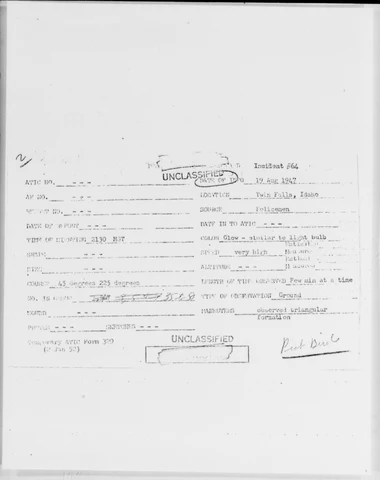 2/
Incident #64
UNCLASSIFIED
DATE OF INFO 19 Aug 1947
ATIC NO. - - -
LOCATION Twin Falls, Idaho
AF NO. - - -
SOURCE Policemen
REPORT NO. - - -
DATE OF REPORT - - -
DATE IN TO ATIC - - -
TIME OF SIGHTING 2130 MST
COLOR Glow - similar to light bulb
SHAPE - - -
SPEED very high
SIZE - - -
ALTITUDE - - -
COURSE 45 degrees 225 degrees
LENGTH OF TIME OBSERVED Few min at a time
NO. IN GROUP
TYPE OF OBSERVATION Ground
SOUND - - -
MANEUVERS observed triangular
formation
PHOTOS - - - SKETCHES - - -
UNCLASSIFIED
Temporary ATIC Form 329
(2 Jan 52)